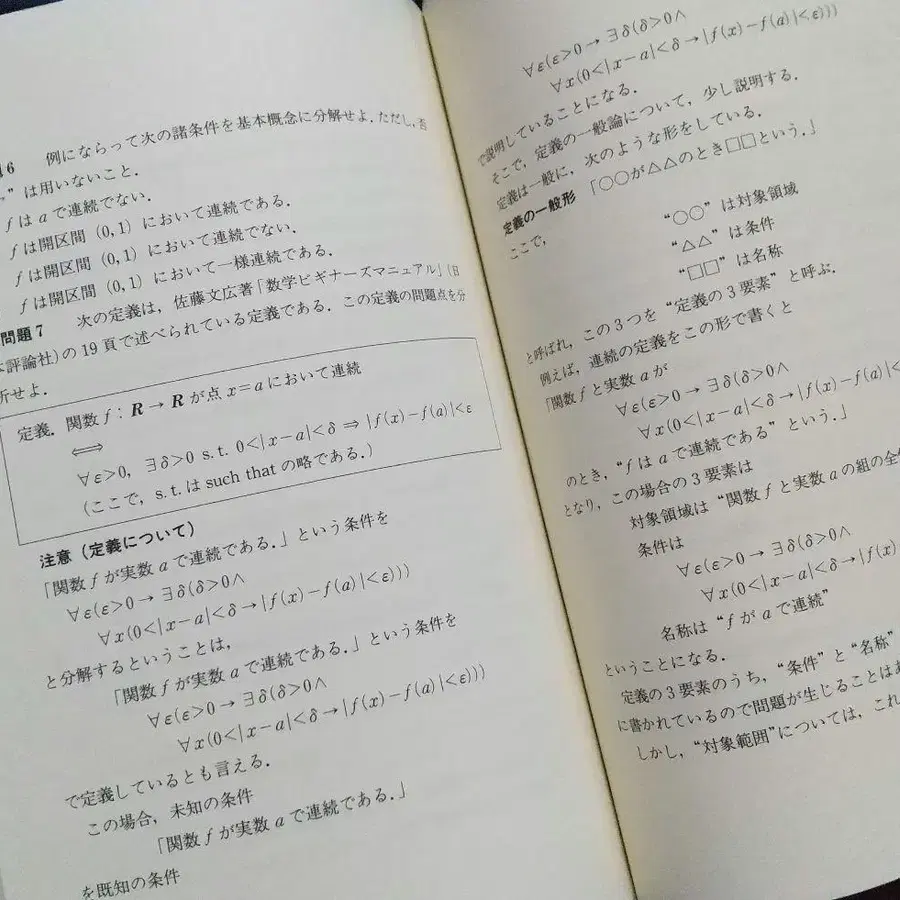 16 例にならって次の諸条件を基本概念に分解せよ.ただし,否
” は用いないこと.
f は a で連続でない.
f は開区間 (0, 1) において連続である.
f は開区間 (0, 1) において連続でない.
f は開区間 (0, 1) において一様連続である.
問題7 次の定義は,佐藤文広著「数学ビギナーズマニュアル」(日
本評論社)の 19 頁で述べられている定義である.この定義の問題点を分
析せよ.
定義.関数 f : R → R が点 x=a において連続
⟺
∀ε>0, ∃δ>0 s.t. 0<|x−a|<δ ⇒ |f(x)−f(a)|<ε
(ここで,s.t. は such that の略である.)
注意(定義について)
「関数 f が実数 a で連続である.」という条件を
∀ε(ε>0→∃δ(δ>0∧
∀x(0<|x−a|<δ→|f(x)−f(a)|<ε)))
と分解するということは,
「関数 f が実数 a で連続である.」という条件を
∀ε(ε>0→∃δ(δ>0∧
∀x(0<|x−a|<δ→|f(x)−f(a)|<ε)))
で定義しているとも言える.
この場合,未知の条件
「関数 f が実数 a で連続である.」
を既知の条件
∀ε(ε>0→∃δ(δ>0∧
∀x(0<|x−a|<δ→|f(x)−f(a)|<ε)))
で説明していることになる.
そこで,定義の一般論について,少し説明する.
定義は一般に,次のような形をしている.
定義の一般形 「○○が△△のとき□□という.」
ここで,
“○○” は対象領域
“△△” は条件
“□□” は名称
と呼ばれ,この3つを “定義の3要素” と呼ぶ.
例えば,連続の定義をこの形で書くと
「関数 f と実数 a が
∀ε(ε>0→∃δ(δ>0∧
∀x(0<|x−a|<δ→|f(x)−f(a)|<
のとき,“f は a で連続である” という.」
となり,この場合の3要素は
対象領域は “関数 f と実数 a の組の全
条件は
∀ε(ε>0→∃δ(δ>0∧
∀x(0<|x−a|<δ→|f(x)
名称は “f が a で連続”
ということになる.
定義の3要素のうち,“条件” と “名称”
に書かれているので問題が生じることはあ
しかし,“対象範囲” については,これ